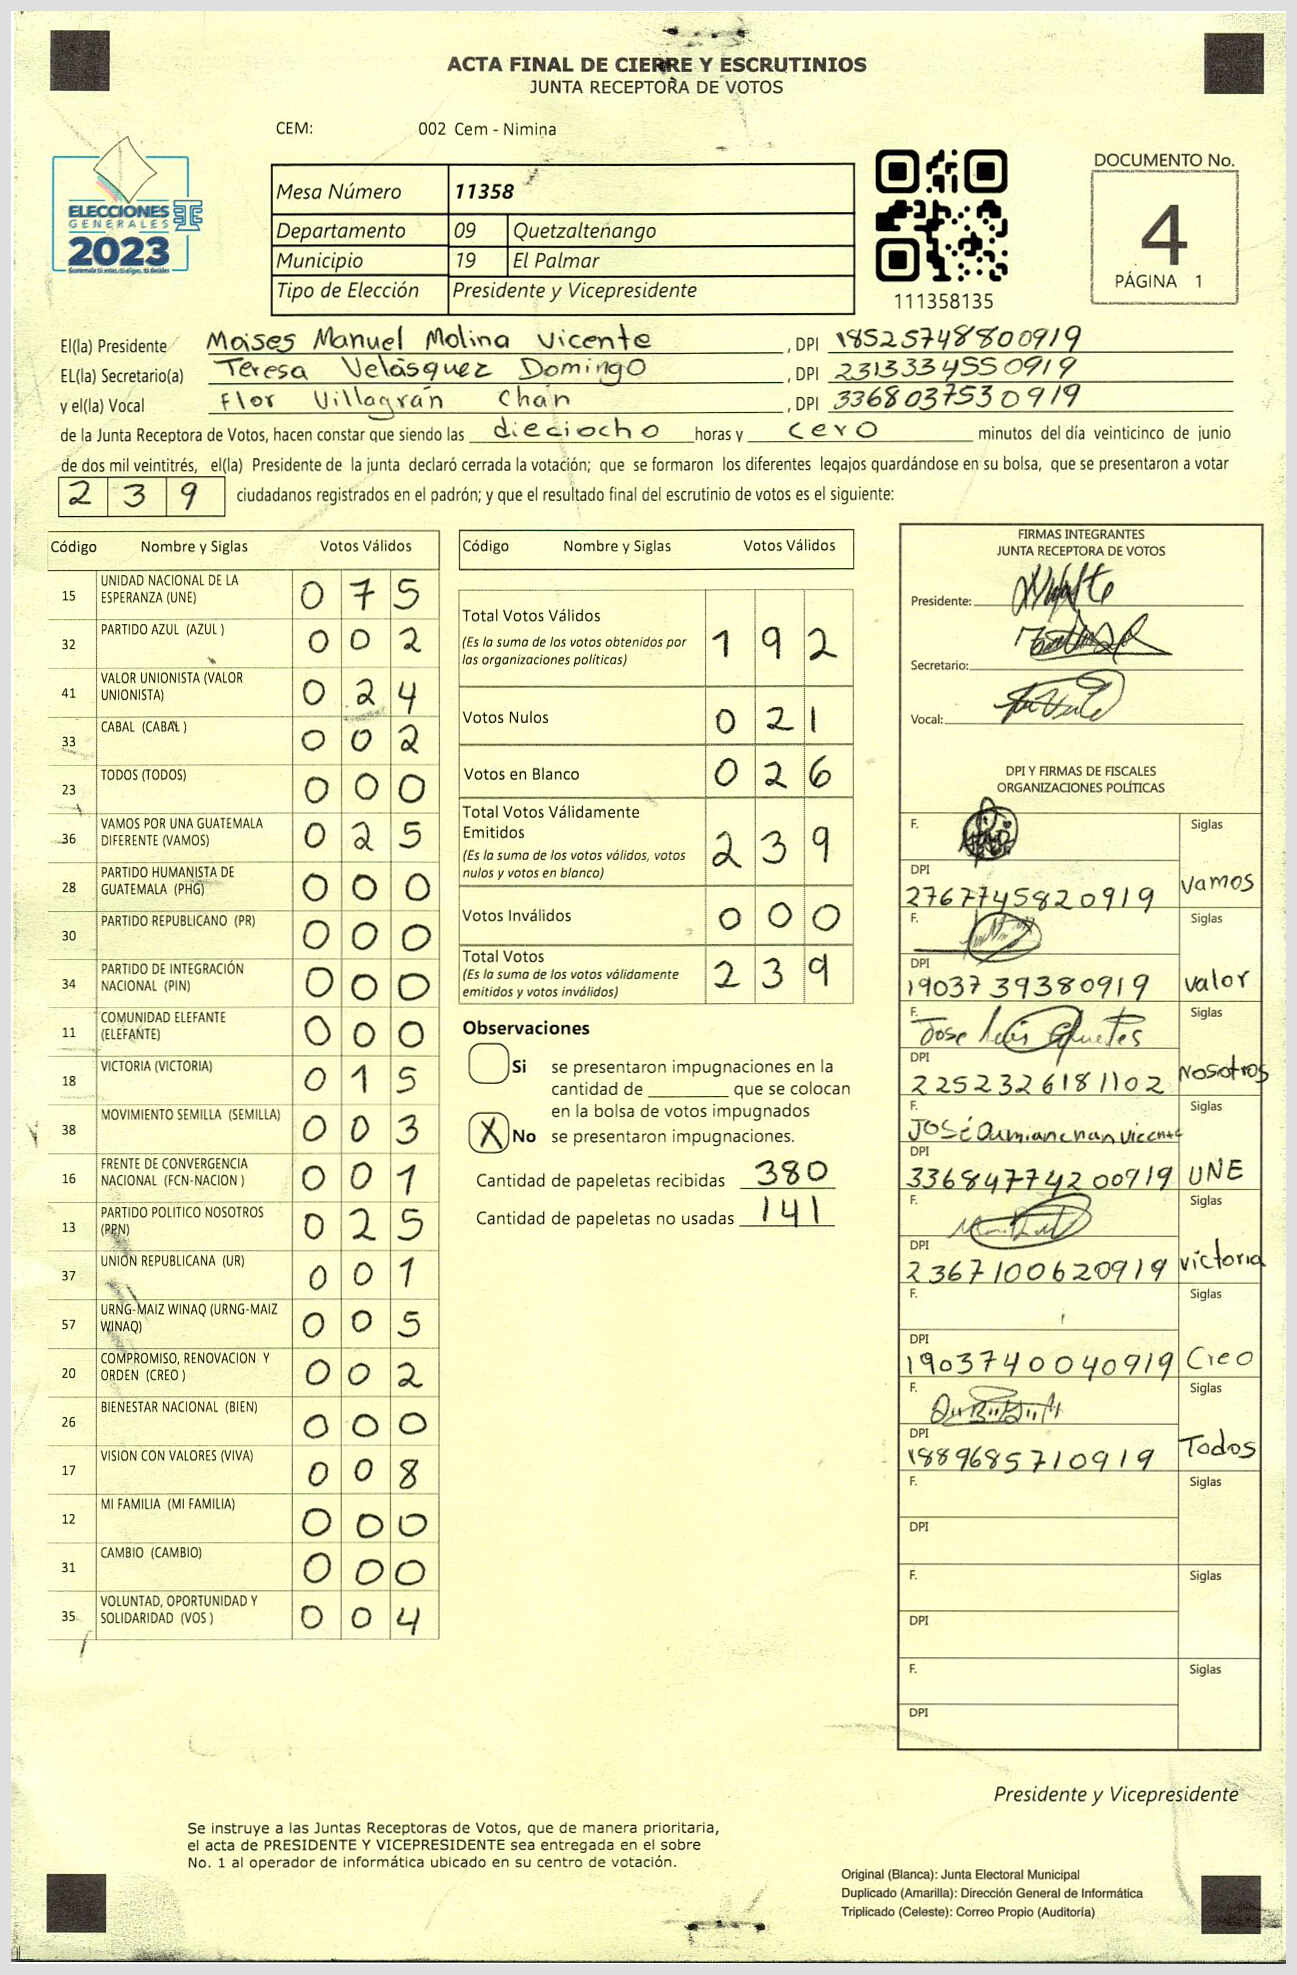 ACTA FINAL DE CIERRE Y ESCRUTINIOS
JUNTA RECEPTORA DE VOTOS
CEM: 002 Cem - Nimina
ELECCIONES
GENERALES
2023
Mesa Número 11358
Departamento 09 Quetzaltenango
Municipio 19 El Palmar
Tipo de Elección Presidente y Vicepresidente
111358135
DOCUMENTO No.
4
PÁGINA 1
El(la) Presidente Moises Manuel Molina Vicente, DPI 1852574880919
EL(la) Secretario(a) Teresa Velásquez Domingo, DPI 2313334550919
y el(la) Vocal Flor Villagrán Chan, DPI 3368037530919
de la Junta Receptora de Votos, hacen constar que siendo las dieciocho horas y cero minutos del día veinticinco de junio
de dos mil veintitrés, el(la) Presidente de la junta declaró cerrada la votación; que se formaron los diferentes legajos guardándose en su bolsa, que se presentaron a votar
239 ciudadanos registrados en el padrón; y que el resultado final del escrutinio de votos es el siguiente:
Código Nombre y Siglas Votos Válidos
15 UNIDAD NACIONAL DE LA ESPERANZA (UNE) 075
32 PARTIDO AZUL (AZUL ) 002
41 VALOR UNIONISTA (VALOR UNIONISTA) 024
33 CABAL (CABAL ) 002
23 TODOS (TODOS) 000
36 VAMOS POR UNA GUATEMALA DIFERENTE (VAMOS) 025
28 PARTIDO HUMANISTA DE GUATEMALA (PHG) 000
30 PARTIDO REPUBLICANO (PR) 000
34 PARTIDO DE INTEGRACIÓN NACIONAL (PIN) 000
11 COMUNIDAD ELEFANTE (ELEFANTE) 000
18 VICTORIA (VICTORIA) 015
38 MOVIMIENTO SEMILLA (SEMILLA) 003
16 FRENTE DE CONVERGENCIA NACIONAL (FCN-NACION ) 001
13 PARTIDO POLITICO NOSOTROS (PPN) 025
37 UNION REPUBLICANA (UR) 001
57 URNG-MAIZ WINAQ (URNG-MAIZ WINAQ) 005
20 COMPROMISO, RENOVACION Y ORDEN (CREO ) 002
26 BIENESTAR NACIONAL (BIEN) 000
17 VISION CON VALORES (VIVA) 008
12 MI FAMILIA (MI FAMILIA) 000
31 CAMBIO (CAMBIO) 000
35 VOLUNTAD, OPORTUNIDAD Y SOLIDARIDAD (VOS ) 004
Código Nombre y Siglas Votos Válidos
Total Votos Válidos 192
(Es la suma de los votos obtenidos por
las organizaciones políticas)
Votos Nulos 021
Votos en Blanco 026
Total Votos Válidamente
Emitidos 239
(Es la suma de los votos válidos, votos
nulos y votos en blanco)
Votos Inválidos 000
Total Votos 239
(Es la suma de los votos válidamente
emitidos y votos inválidos)
Observaciones
Si se presentaron impugnaciones en la
cantidad de ________ que se colocan
en la bolsa de votos impugnados
X No se presentaron impugnaciones.
Cantidad de papeletas recibidas 380
Cantidad de papeletas no usadas 141
FIRMAS INTEGRANTES
JUNTA RECEPTORA DE VOTOS
Presidente:
Secretario:
Vocal:
DPI Y FIRMAS DE FISCALES
ORGANIZACIONES POLÍTICAS
F. Siglas
DPI Vamos
2767745820919
F. Siglas
DPI valor
1903739380919
F. Jose Luis Siglas
DPI Nosotros
2252326181102
F. José Damian chan vicente Siglas
DPI UNE
33684774200919
F. Siglas
DPI victoria
2367100620919
F. Siglas
DPI Creo
1903740040919
F. Siglas
DPI Todos
1889685710919
F. Siglas
DPI
F. Siglas
DPI
F. Siglas
DPI
Presidente y Vicepresidente
Se instruye a las Juntas Receptoras de Votos, que de manera prioritaria,
el acta de PRESIDENTE Y VICEPRESIDENTE sea entregada en el sobre
No. 1 al operador de informática ubicado en su centro de votación.
Original (Blanca): Junta Electoral Municipal
Duplicado (Amarilla): Dirección General de Informática
Triplicado (Celeste): Correo Propio (Auditoría)